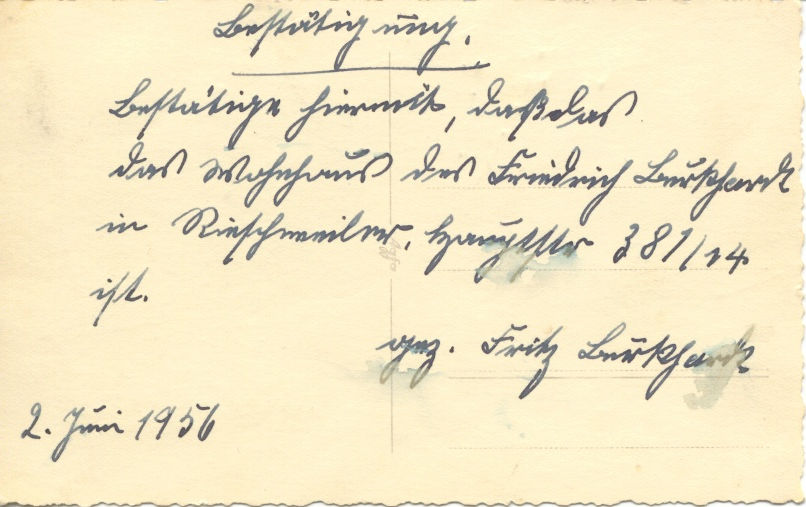 Bestätigung.
Bestätige hiermit, daß das
das Wohnhaus des Friedrich Burkhardt
in Rieschweiler, Hauptstr 381/14
ist.
gez. Fritz Burkhardt
2. Juni 1956